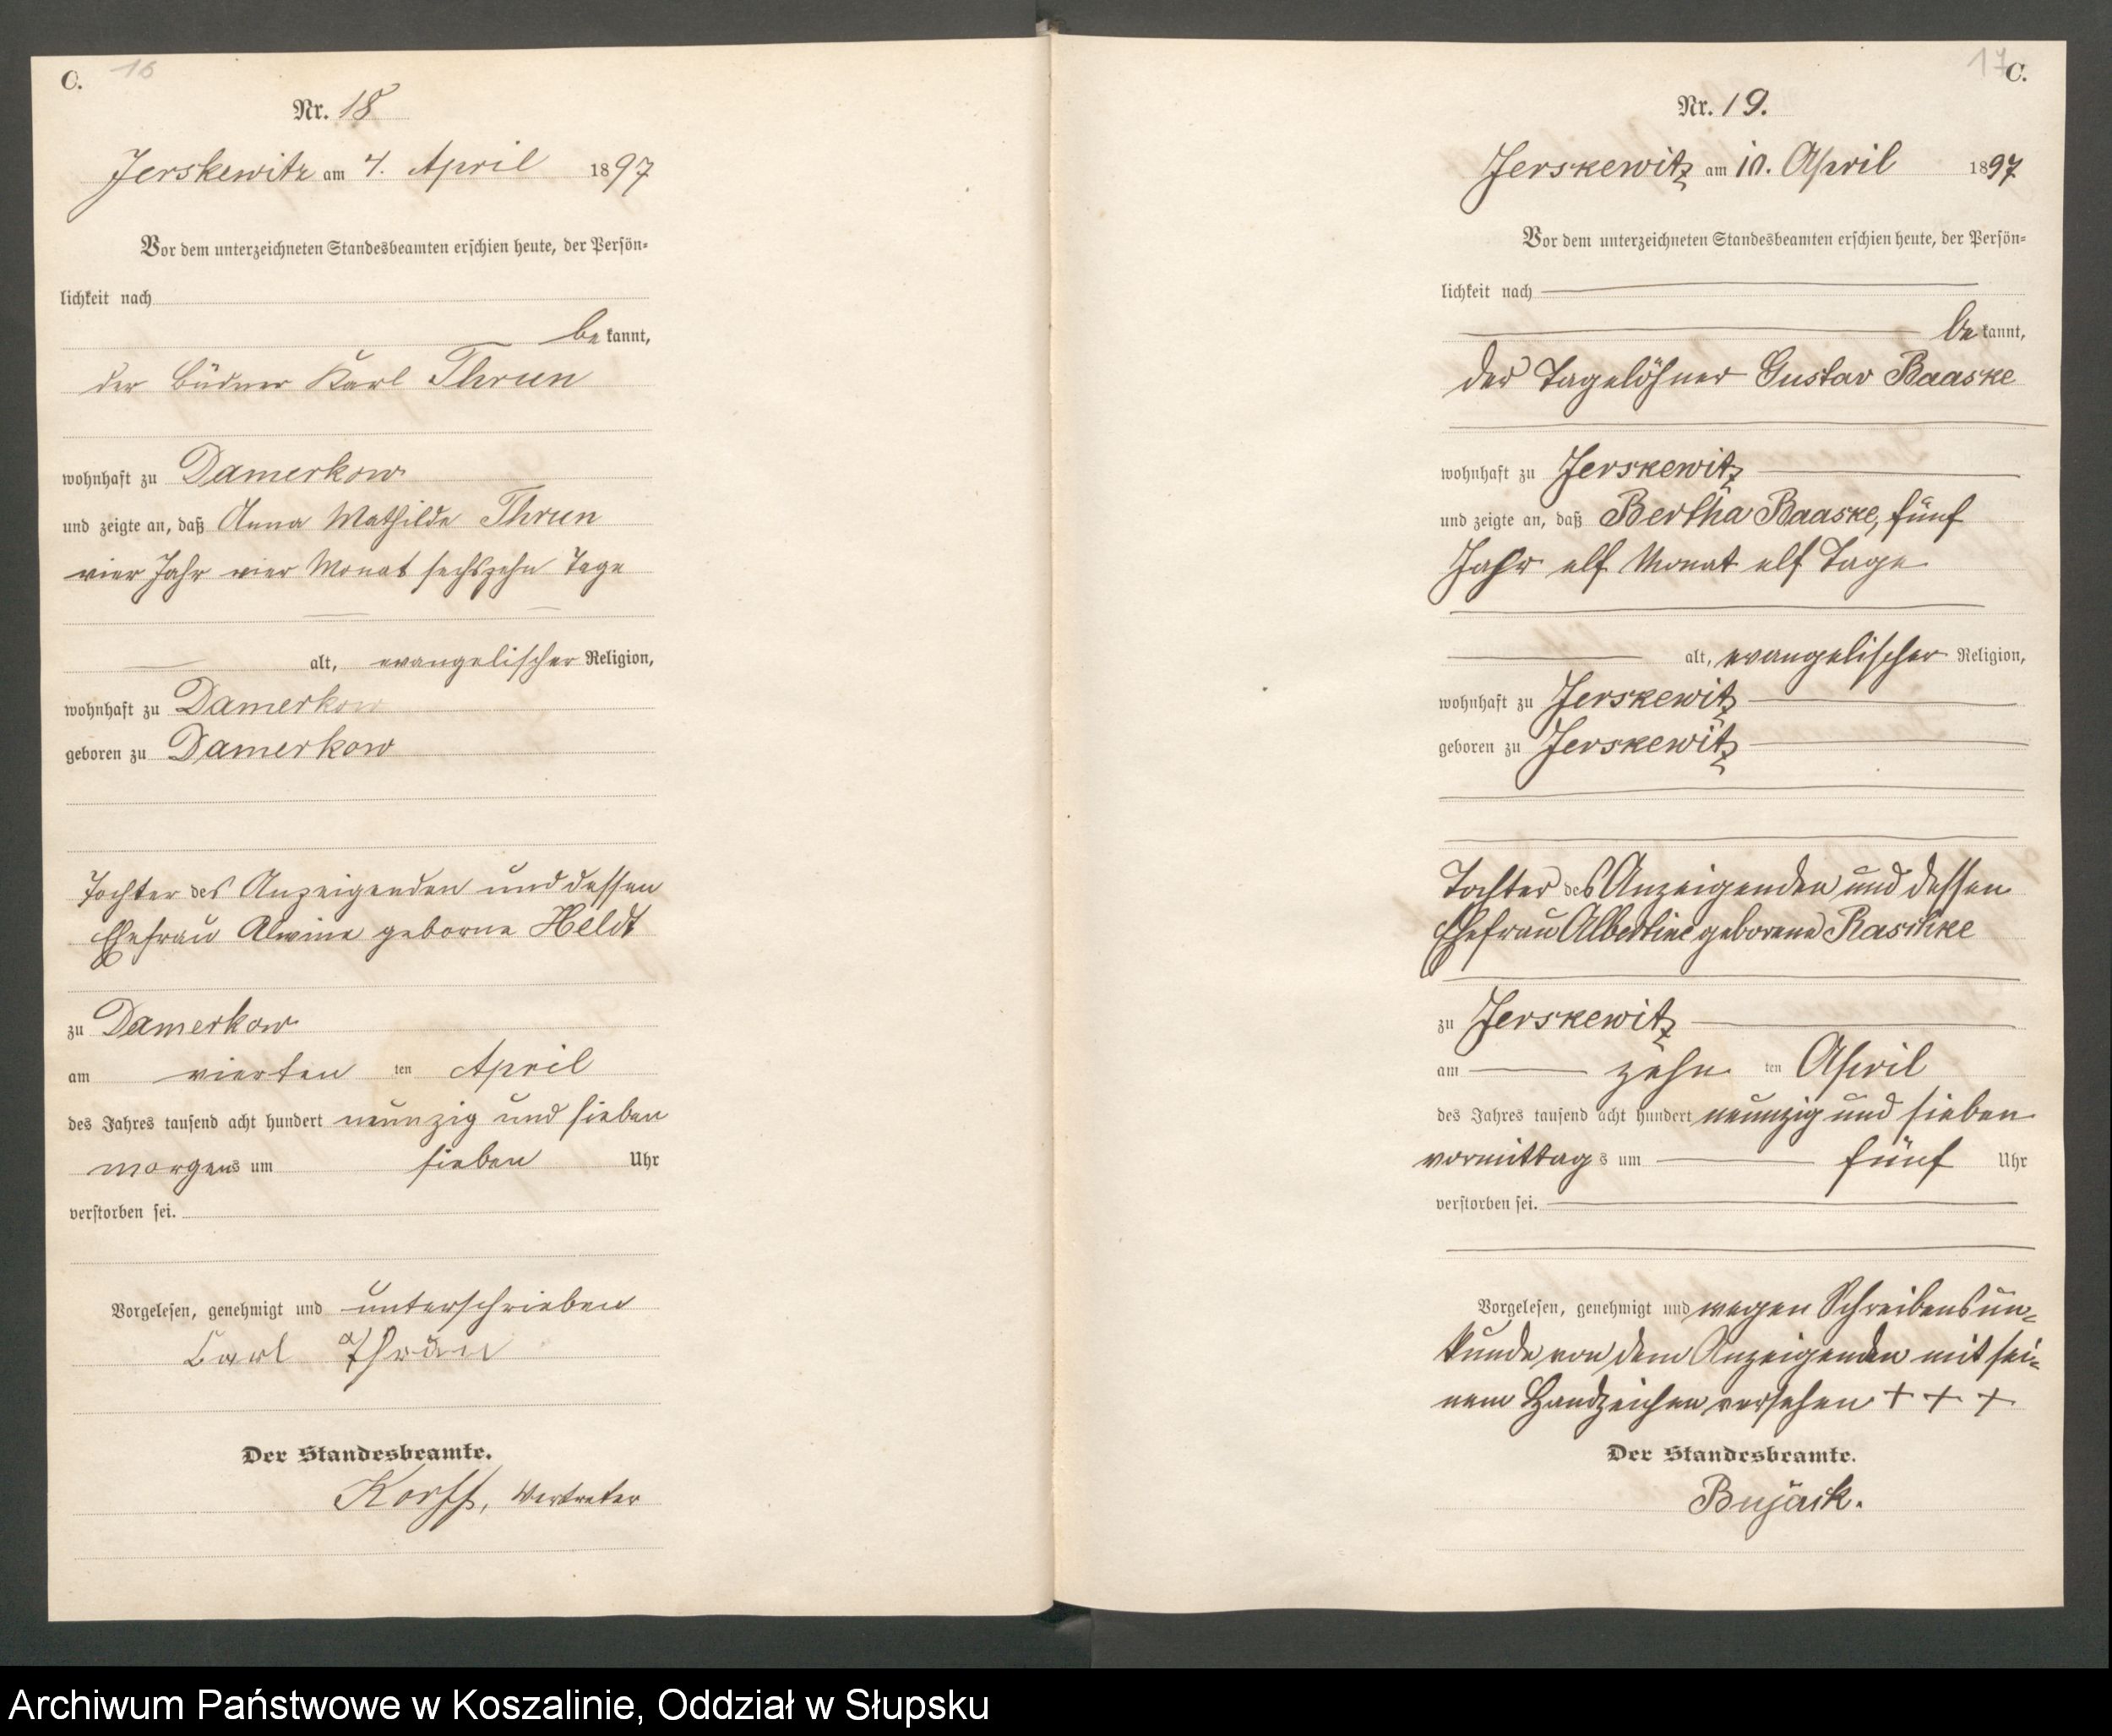 C. 16
Nr. 18
Jerskewitz am 4. April 1897
Vor dem unterzeichneten Standesbeamten erschien heute, der Persön-
lichkeit nach
bekannt,
der Büdner Karl Thrun
wohnhaft zu Damerkow
und zeigte an, daß Anna Mathilde Thrun
vier Jahr vier Monat sechszehn Tage
alt, evangelischer Religion,
wohnhaft zu Damerkow
geboren zu Damerkow
Tochter des Anzeigenden und dessen
Ehefrau Alwine geborne Heldt
zu Damerkow
am vierten ten April
des Jahres tausend acht hundert neunzig und sieben
morgens um sieben Uhr
verstorben sei.
Vorgelesen, genehmigt und unterschrieben
Carl Thrun
Der Standesbeamte.
Korff, Vertreter
17 C.
Nr. 19.
Jerskewitz am 10. April 1897
Vor dem unterzeichneten Standesbeamten erschien heute, der Persön-
lichkeit nach
bekannt,
der Tagelöhner Gustav Baaske
wohnhaft zu Jerskewitz
und zeigte an, daß Bertha Baaske, fünf
Jahr elf Monat elf Tage
alt, evangelischer Religion,
wohnhaft zu Jerskewitz
geboren zu Jerskewitz
Tochter des Anzeigenden und dessen
Ehefrau Albertine geborene Raschke
zu Jerskewitz
am zehn ten April
des Jahres tausend acht hundert neunzig und sieben
vormittags um fünf Uhr
verstorben sei.
Vorgelesen, genehmigt und wegen Schreibensun-
kunde von dem Anzeigenden mit sei-
nem Handzeichen versehen + + +
Der Standesbeamte.
Bujack.
Archiwum Państwowe w Koszalinie, Oddział w Słupsku